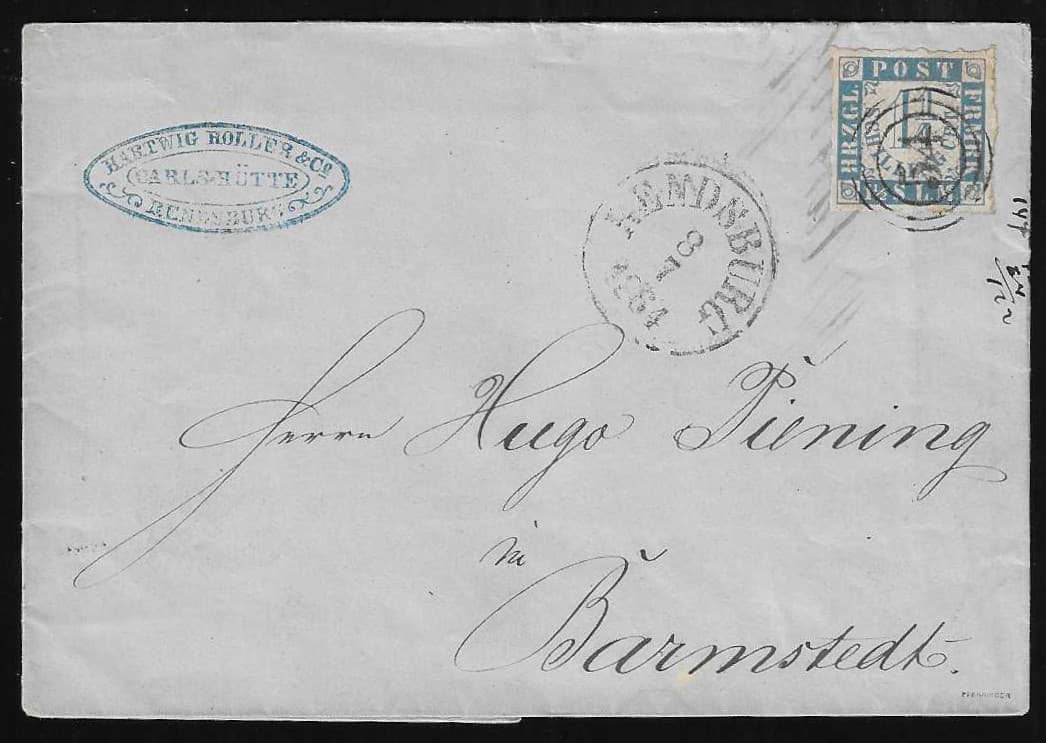 HARTWIG HOLLER & Co
CARLS-HÜTTE
RENDSBURG
POST
HRZGL
FRMRK
1¼
RENDSBURG
8
1864
Herrn Hugo Piening
in
Barmstedt.
PFENNINGER